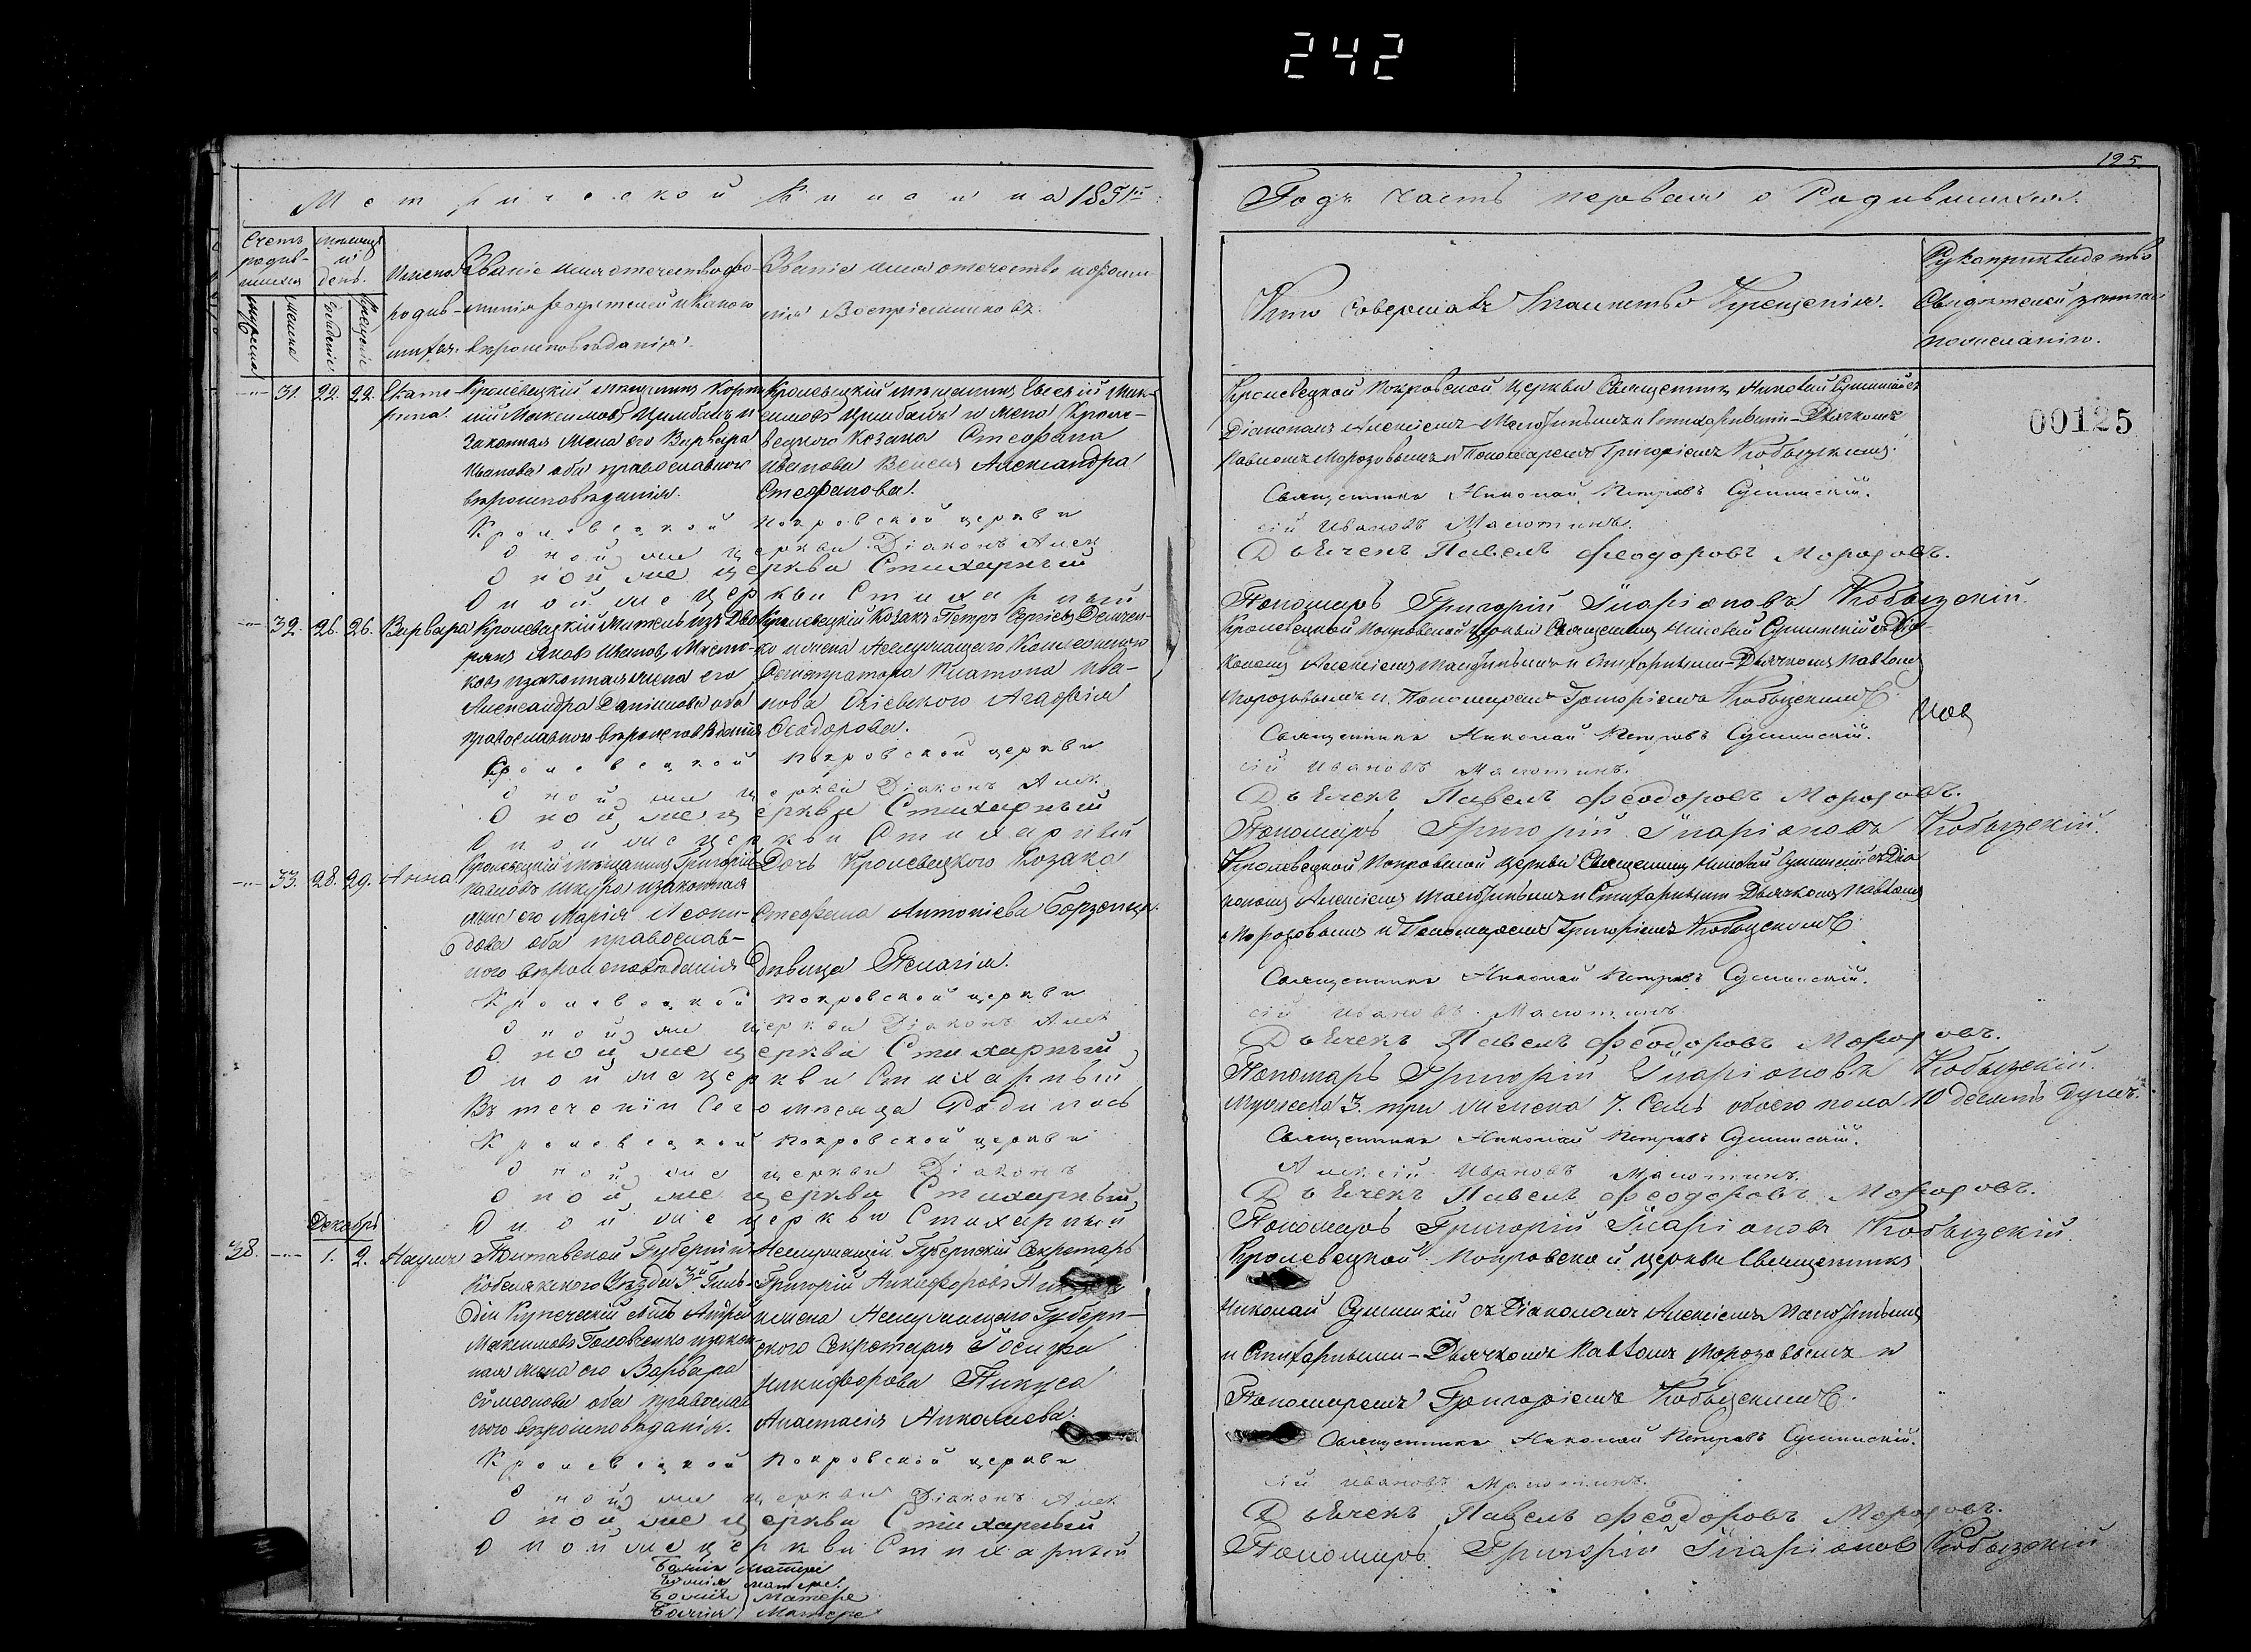 242
125
Метрической Книги на 1851й
Годъ часть первая о Родившихся.
Счетъ родив-
шихся
Мѣсяцъ
и
день.
мужеска
женска
рожденіе
крещеніе
Имена
родив-
шихся.
Званіе имя отечество и фа-
милія родителей и какого
вѣроисповѣданія.
Званіе имя отечество и фами-
лія Воспріемниковъ.
Кто совершалъ Таинство Крещенія.
Рукоприкладство
Свидѣтелей записи
по желанію.
31. 22. 22. Екате-
рина
Кролевецкій мѣщанинъ Корни-
лій Максимовъ Цимбалъ и
Законная Жена его Варвара
Иванова оба православного
вѣроисповѣданія.
Кролевецкій мѣщанинъ Евсевій Мак-
симовъ Цимбалъ и жена Кроле-
вецкого Козака Стефана
Иванова Александра
Стефанова.
Кролевецкой Покровской церкви Священникъ Николай Суминскій съ
Діакономъ Алексіемъ Малютинымъ и Стихарными Дьячкомъ
Павломъ Морозовымъ и Пономаремъ Григоріемъ Кобызскимъ.
00125
Кролевецкой Покровской церкви Священникъ Николай Петровъ Суминскій.
Оной же церкви Діаконъ Алексій Ивановъ Малютинъ.
Оной же церкви Стихарный Дьячекъ Павелъ Феодоровъ Морозовъ.
Оной же церкви Стихарный Пономарь Григорій Иларіоновъ Кобызскій.
32. 26. 26. Варвара
Кролевецкій житель изъ Дво-
рянъ Яковъ Ивановъ
и законная жена его
Александра Даніилова оба
православного вѣроисповѣданія
Кролевецкій Козакъ Петръ Сергіевъ
и жена Неслужащего Коллежского
Регистратора Платона Ива-
нова Агафія
Феодорова.
Кролевецкой Покровской церкви Священникъ Николай Суминскій съ Діа-
кономъ Алексіемъ Малютинымъ и Стихарными Дьячкомъ Павломъ
Морозовымъ и Пономаремъ Григоріемъ Кобызскимъ
Кролевецкой Покровской церкви Священникъ Николай Петровъ Суминскій.
Оной же церкви Діаконъ Алексій Ивановъ Малютинъ.
Оной же церкви Стихарный Дьячекъ Павелъ Феодоровъ Морозовъ.
Оной же церкви Стихарный Пономарь Григорій Иларіоновъ Кобызскій.
33. 28. 29. Анна
Кролевецкій мѣщанинъ Григорій
Павловъ Шкура и законная
жена его Марія Леони-
дова оба православ-
ного вѣроисповѣданія
Дочь Кролевецкого Козака
Стефана Антоніева
дѣвица Пелагія.
Кролевецкой Покровской церкви Священникъ Николай Суминскій съ Діа-
кономъ Алексіемъ Малютинымъ и Стихарными Дьячкомъ Павломъ
Морозовымъ и Пономаремъ Григоріемъ Кобызскимъ
Кролевецкой Покровской церкви Священникъ Николай Петровъ Суминскій.
Оной же церкви Діаконъ Алексій Ивановъ Малютинъ
Оной же церкви Стихарный Дьячекъ Павелъ Феодоровъ Морозовъ.
Оной же церкви Стихарный Пономарь Григорій Иларіоновъ Кобызскій.
Въ теченіи сего мѣсяца Родилось мужеска 3. три женска 7. семь обоего пола 10 десять душъ.
Кролевецкой Покровской церкви Священникъ Николай Петровъ Суминскій.
Оной же церкви Діаконъ Алексій Ивановъ Малютинъ.
Оной же церкви Стихарный Дьячекъ Павелъ Феодоровъ Морозовъ.
Оной же церкви Стихарный Пономарь Григорій Иларіоновъ Кобызскій.
Декабрь
38. 1. 2. Наумъ
Полтавской Губерніи
Кобелякского Уѣзда 3й Гиль-
діи Купеческій сынъ Андрей
Максимовъ Головченко и закон-
ная жена его Варвара
Симеонова оба православ-
ного вѣроисповѣданія.
Неслужащій Губернскій Секретарь
Григорій Никифоровъ
и жена Неслужащего Губерн-
ского Секретаря Іосифа
Никифорова Пикуса
Анастасія Николаева.
Кролевецкой Покровской церкви Священникъ
Николай Суминскій съ Діакономъ Алексіемъ Малютинымъ
и Стихарными Дьячкомъ Павломъ Морозовымъ и
Пономаремъ Григоріемъ Кобызскимъ.
Кролевецкой Покровской церкви Священникъ Николай Петровъ Суминскій.
Оной же церкви Діаконъ Алексій Ивановъ Малютинъ.
Оной же церкви Стихарный Дьячекъ Павелъ Феодоровъ Морозовъ.
Оной же церкви Стихарный Пономарь Григорій Иларіоновъ Кобызскій
Божія Матере
Божія Матере
Божія Матере
Божія Матере